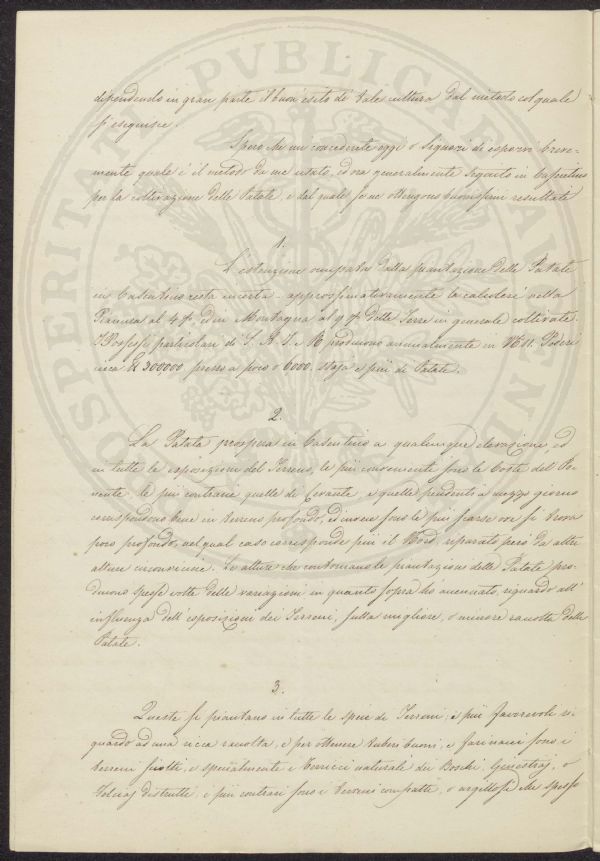 dipendendo in gran parte il buon esito di tale cultura dal metodo col quale
si eseguisce.
Spero che mi concederete oggi o Signori di esporvi breve-
mente quale è il metodo da me usato, ed ora generalmente seguito in Casentino
per la coltivazione delle Patate, e dal quale se ne ottengono buonissimi resultati
1.
L'estenzione occupata dalla piantazione delle Patate
in Casentino resta incerta - approssimativamente la calcolerei nella
Pianura al 4 p. ed in Montagna al 9 p. delle Terre in generale coltivate.
I Possessi particolari di S. A. I. e R. producono annualmente in Poderi
circa 300,000 presso a poco o 6000 staja e più di Patate.
2.
La Patata prospera in Casentino a qualunque elevazione, ed
in tutte le esposizione del Terreno, le più conveniente sono le Coste del Po-
nente, le più contrarie quelle di Levante, e quelle pendenti a mezzo giorno
corrispondono bene in terreno profondo, ed invece sono le più scarse ove si trova
poco profondo, nel qual caso corrisponde più il Nord, riparato però da altre
alture circonvicine. Le alture che contornano le piantazione delle Patate pro-
ducono spesse volte delle variazioni in quanto sopra ho accennato, riguardo all'
influenza dell'esposizioni dei Terreni, sulla migliore, o minore raccolta delle
Patate.
3.
Queste si piantano in tutte le specie di Terreni, i più favorevoli ri-
guardo ad una ricca raccolta, e per ottenere tuberi buoni, e farinacei sono i
terreni sciolti, e specialmente i Terricci naturali dei Boschi, o
distrutti, i più contrari sono i Terreni compatti, o argillosi che spesso